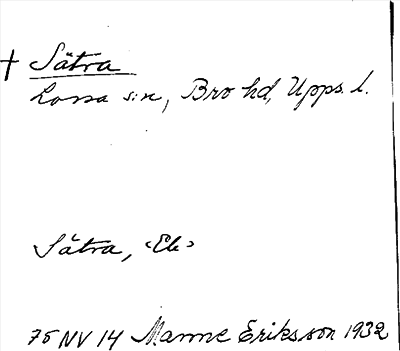 † Sätra
Lossa s:n, Bro hd, Upps. l.
Sätra, <Ek>
75 NV 14 Manne Eriksson 1932